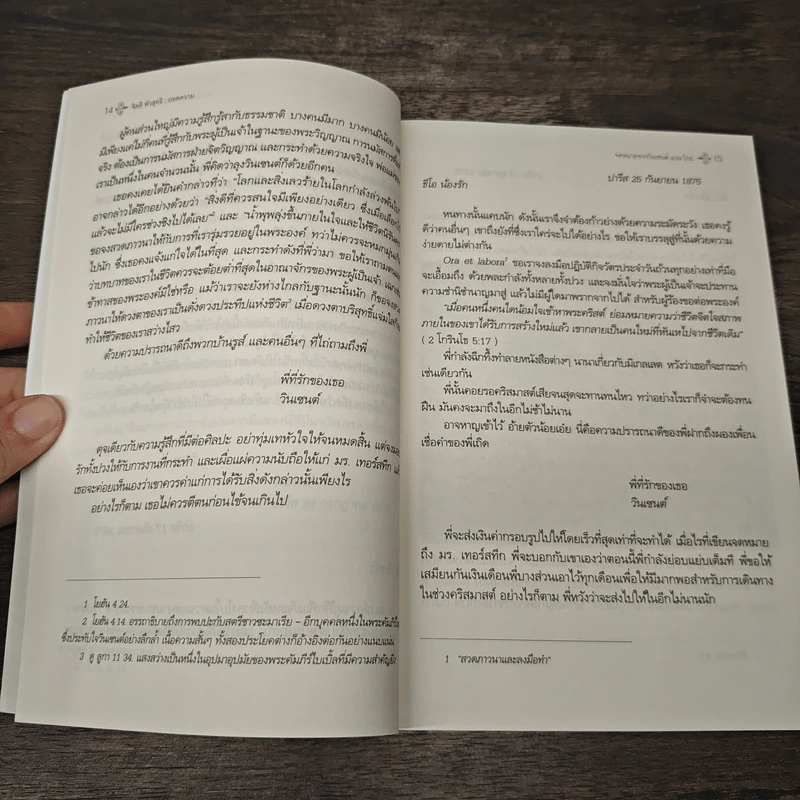 14 จิตติ พัวสุทธิ : ถอดความ
ผู้คนส่วนใหญ่มีความรู้สึกรู้สากับธรรมชาติ บางคนมีมาก บางคนมีน้อย
มีเพียงแค่ไม่กี่คนที่รู้สึกกับพระผู้เป็นเจ้าในฐานะของพระวิญญาณ การนมัสการ
จริง ต้องเป็นการนมัสการฝ่ายจิตวิญญาณ และกระทำด้วยความจริงใจ
เราเป็นหนึ่งในคนจำนวนนั้น พี่คิดว่าลุงวินเซนต์ก็ด้วยอีกคน
เธอคงเคยได้ยินคำกล่าวที่ว่า “โลกและสิ่งเลวร้ายในโลกกำลังล่วงพ้นไป
อาจกล่าวได้อีกอย่างด้วยว่า “สิ่งดีที่ควรสนใจมีเพียงอย่างเดียว ซึ่งเมื่อเลือก
แล้วจะไม่มีใครช่วงชิงไปได้เลย” และ “น้ำพุพลุ่งขึ้นภายในใจและให้ชีวิต
ขอจงสวดภาวนาให้กับการที่เรารุ่มรวยอยู่ในพระองค์ ทว่าไม่ควรจะหมกมุ่น
ไปนัก ซึ่งเธอคงแจ้งแก่ใจได้ในที่สุด และกระทำดังที่พี่ว่ามา ขอให้เราถาม
ว่าบทบาทของเราในชีวิตควรจะต้อยต่ำที่สุดในอาณาจักรของพระผู้เป็นเจ้า
ข้าทาสของพระองค์มิใช่หรือ แม้ว่าเราจะยังห่างไกลกับฐานะนั้นนัก ก็ขอจง
ภาวนาให้ดวงตาของเราเป็นดังดวงประทีปแห่งชีวิต³ เมื่อดวงตาบริสุทธิ์แจ่มใส
ทำให้ชีวิตของเราสว่างไสว
ด้วยความปรารถนาดีถึงพวกบ้านรูส์ และคนอื่นๆ ที่ไถ่ถามถึงพี่
พี่ที่รักของเธอ
วินเซนต์
ดุจเดียวกับความรู้สึกที่มีต่อศิลปะ อย่าทุ่มเทหัวใจให้จนหมดสิ้น แต่จงมอบ
รักทั้งปวงให้กับการงานที่กระทำ และเผื่อแผ่ความนับถือให้แก่ มร. เทอร์สทีก
เธอจะค่อยเห็นเองว่าเขาควรค่าแก่การได้รับสิ่งดังกล่าวนั้นเพียงไร
อย่างไรก็ตาม เธอไม่ควรตีตนก่อนไข้จนเกินไป
1 โยฮัน 4 24.
2 โยฮัน 4 14. อรรถาธิบายถึงการพบปะกับสตรีชาวซะมาเรีย – อีกบุคคลหนึ่งในพระคัมภีร์
ซึ่งประทับใจวินเซนต์อย่างลึกล้ำ เนื้อความสั้นๆ ทั้งสองประโยคต่างก็อ้างอิงต่อกันอย่างแนบแน่น
3 ดู ลูกา 11 34. แสงสว่างเป็นหนึ่งในอุปมาอุปมัยของพระคัมภีร์ไบเบิ้ลที่มีความสำคัญยิ่ง
จดหมายจากวินเซนต์ แวนโก๊ะ 15
ปารีส 25 กันยายน 1875
ธีโอ น้องรัก
หนทางนั้นแคบนัก ดังนั้นเราจึงจำต้องก้าวย่างด้วยความระมัดระวัง เธอคงรู้
ดีว่าคนอื่นๆ เขาถึงยังที่ซึ่งเราใคร่จะไปได้อย่างไร ขอให้เราบรรลุสู่ที่นั้นด้วยความ
ง่ายดายไม่ต่างกัน
Ora et labora¹ ขอเราจงลงมือปฏิบัติกิจวัตรประจำวันถ้วนทุกอย่างเท่าที่มือ
จะเอื้อมถึง ด้วยพละกำลังทั้งหลายทั้งปวง และจงมั่นใจว่าพระผู้เป็นเจ้าจะประทาน
ความชำนิชำนาญมาสู่ แล้วไม่มีผู้ใดมาพรากจากไปได้ สำหรับผู้ร้องขอต่อพระองค์
“เมื่อคนหนึ่งคนใดน้อมใจเข้าหาพระคริสต์ ย่อมหมายความว่าชีวิตจิตใจสภาพ
ภายในของเขาได้รับการสร้างใหม่แล้ว เขากลายเป็นคนใหม่ที่หันเหไปจากชีวิตเดิม”
( 2 โกรินโธ 5:17 )
พี่กำลังฉีกทิ้งทำลายหนังสือต่างๆ นานาเกี่ยวกับมิเกลเลต หวังว่าเธอก็จะกระทำ
เช่นเดียวกัน
พี่นั้นคอยรอคริสมาสต์เสียจนสุดจะทานทนไหว ทว่าอย่างไรเราก็จำจะต้องทน
ฝืน มันคงจะมาถึงในอีกไม่ช้าไม่นาน
อาจหาญเข้าไว้ อ้ายตัวน้อยเอ๋ย นี่คือความปรารถนาดีของพี่ฝากถึงผองเพื่อน
เชื่อคำของพี่เถิด
พี่ที่รักของเธอ
วินเซนต์
พี่จะส่งเงินค่ากรอบรูปไปให้โดยเร็วที่สุดเท่าที่จะทำได้ เมื่อไรที่เขียนจดหมาย
ถึง มร. เทอร์สทีก พี่จะบอกกับเขาเองว่าตอนนี้พี่กำลังย่อบแย่บเต็มที พี่ขอให้
เสมียนกันเงินเดือนพี่บางส่วนเอาไว้ทุกเดือนเพื่อให้มีมากพอสำหรับการเดินทาง
ในช่วงคริสมาสต์ อย่างไรก็ตาม พี่หวังว่าจะส่งไปให้ในอีกไม่นานนัก
1 “สวดภาวนาและลงมือทำ”